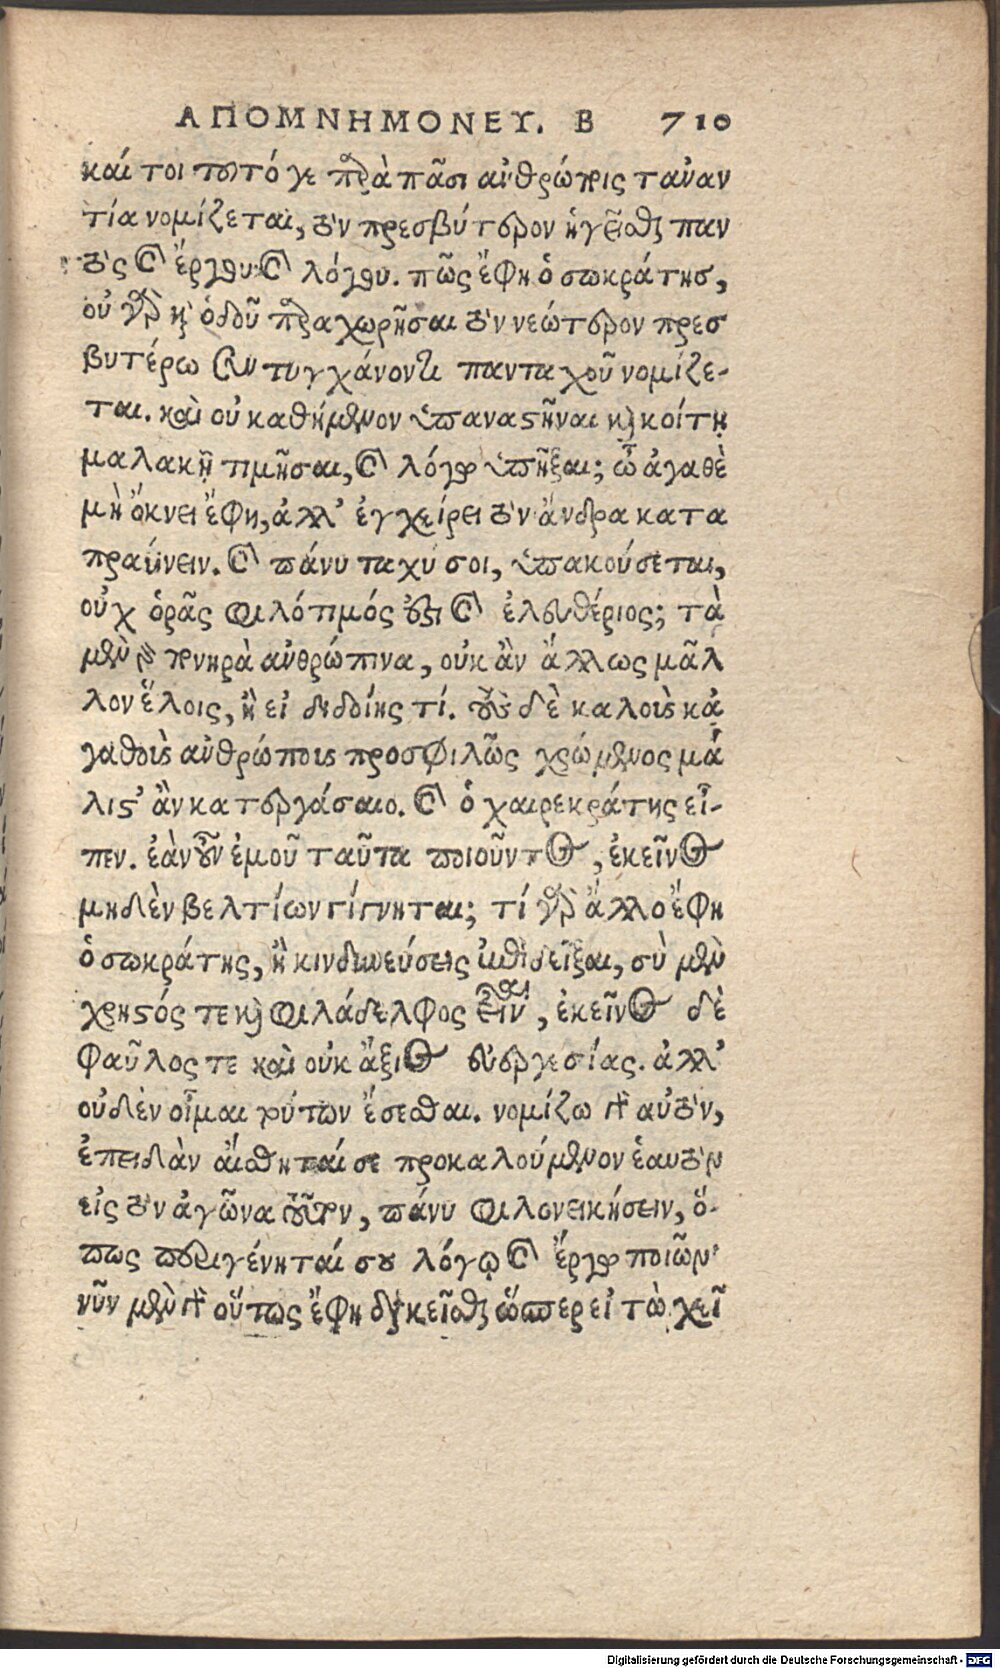 ΑΠΟΜΝΗΜΟΝΕΥ. Β 710
καί τοι τουτό γε παρὰ πᾶσι ανθρώποις ταναν
τία νομίζεται, τὸν πρεσβύτερον ἡγεῖσθαι παν
τὸς καὶ ἔργου καὶ λόγου. πῶς ἔφη ὁ σωκράτησ,
οὐ γὰρ καὶ ὁδοῦ παραχωρῆσαι τὸν νεώτερον πρεσ
βυτέρω συντυγχάνοντι πανταχοῦ νομίζε-
ται. καὶ οὐ καθήμενον ὑπαναστῆναι καὶ κοίτῃ
μαλακῇ τιμῆσαι, καὶ λόγων ὑπεῖξαι; ὦ ἀγαθὲ
μὴ ὄκνει ἔφη, ἀλλ' ἐγχείρει τὸν ἄνδρα κατα
πραύνειν. καὶ πάνυ ταχύ σοι, ὑπακούσεται,
οὐχ ὁρᾶς φιλότιμός ἐστι καὶ ἐλευθέριος; τὰ
μὲν γὰρ πονηρὰ ανθρώπινα, οὐκ ἂν ἄλλως μᾶλ
λον ἕλοις, ἢ εἰ διδοίης τί. τοὺς δὲ καλοὺς κἀ
γαθοὺς ανθρώπους προσφιλῶς χρώμενος μά
λιστ' ἂν κατεργάσαιο. καὶ ὁ χαιρεκράτης εἶ-
πεν. ἐὰν οὖν ἐμοῦ ταῦτα ποιοῦντος, ἐκεῖνος
μηδὲν βελτίων γίγνηται; τί γὰρ ἄλλο ἔφη
ὁ σωκράτης, ἢ κινδυνεύσεις ἐπιδεῖξαι, σὺ μὲν
χρηστός τε καὶ φιλάδελφος εἶναι, ἐκεῖνος δὲ
φαῦλος τε καὶ οὐκ ἄξιος εὐεργεσίας. ἀλλ'
οὐδὲν οἶμαι τούτων ἔσεσθαι. νομίζω γὰρ αὐτὸν,
ἐπειδὰν αἴσθηταί σε προκαλούμενον ἑαυτὸν
εἰς τὸν ἀγῶνα τοῦτον, πάνυ φιλονεικήσειν, ὅ-
πως περιγένηταί σου λόγῳ καὶ ἔργῳ ποιῶν
νῦν μὲν γὰρ οὕτως ἔφη διάκεισθαι ὥσπερ εἰ τὼ χεῖ